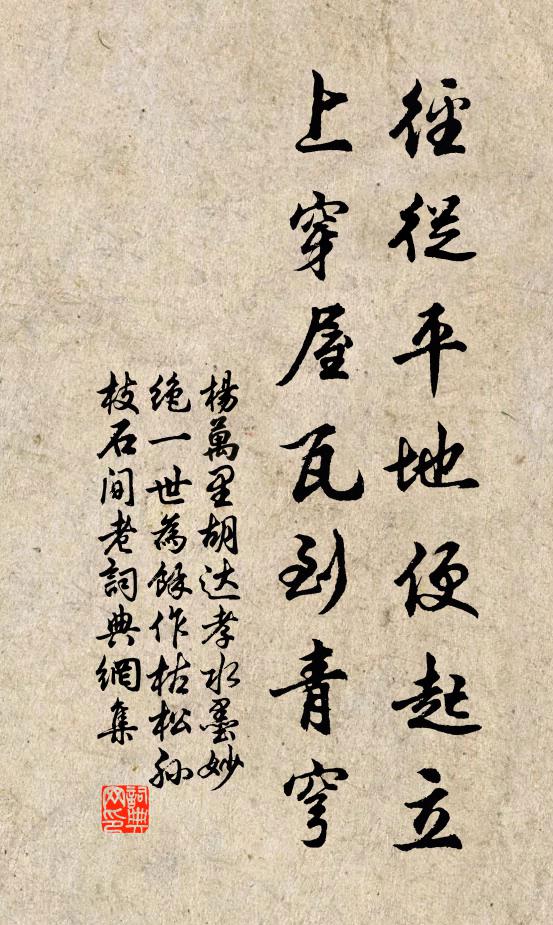 徑從平地便起立
上穿屋瓦到青穹
楊萬里胡达孝水墨妙
绝一世為餘作枯松孙
枝石间老詞典網集
詞典
网印